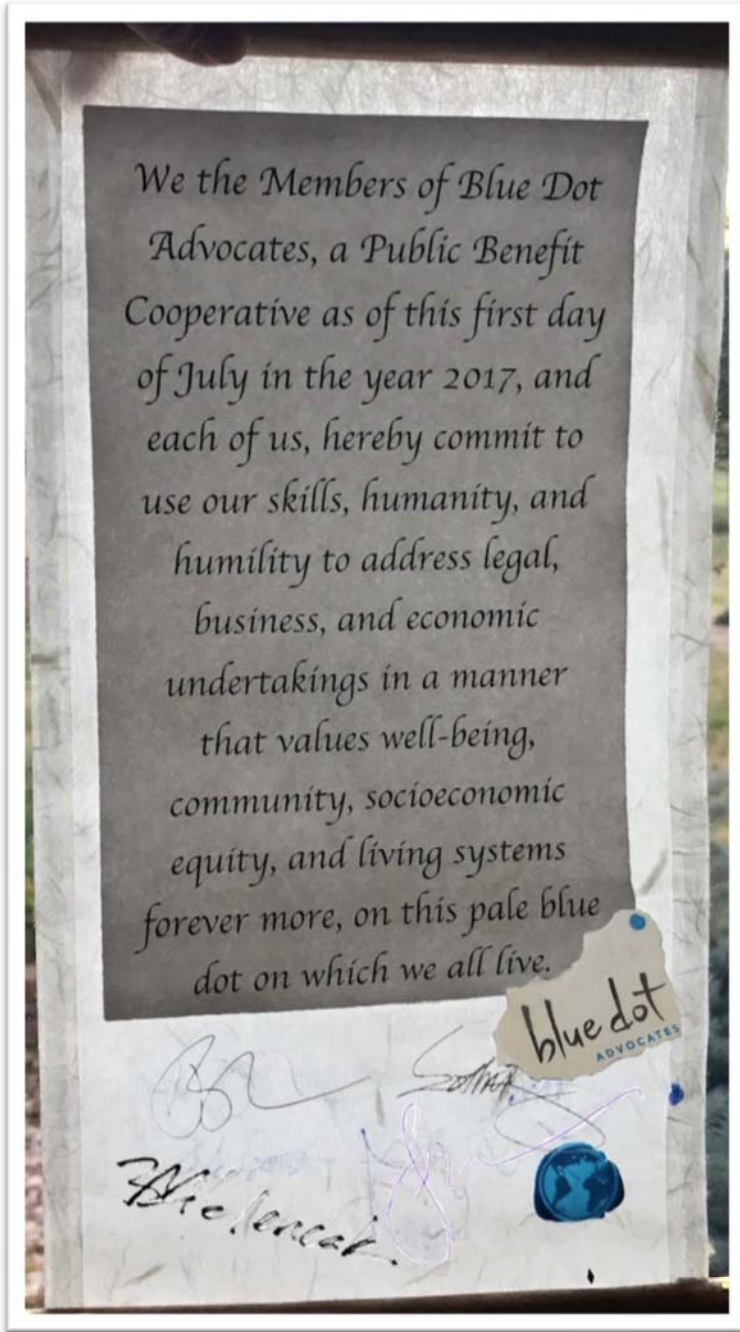 We the Members of Blue Dot
Advocates, a Public Benefit
Cooperative as of this first day
of July in the year 2017, and
each of us, hereby commit to
use our skills, humanity, and
humility to address legal,
business, and economic
undertakings in a manner
that values well-being,
community, socioeconomic
equity, and living systems
forever more, on this pale blue
dot on which we all live.
blue dot
ADVOCATES